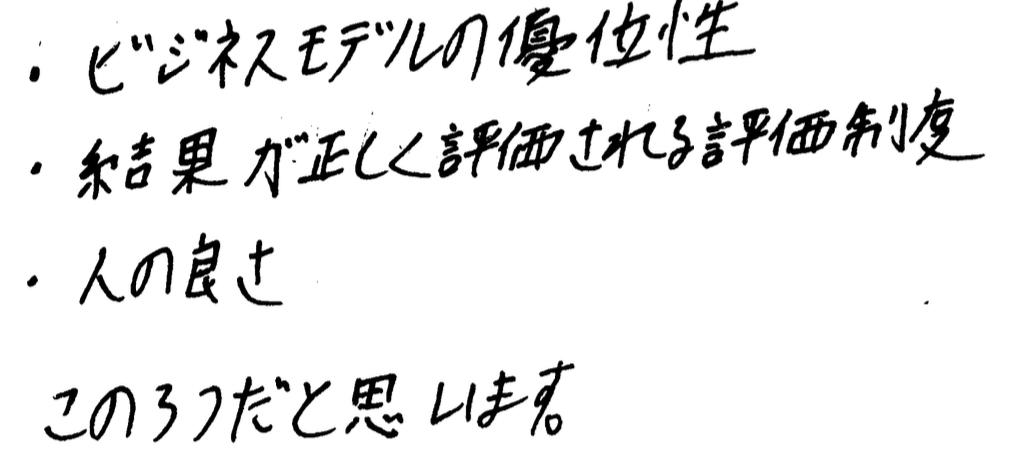 ・ビジネスモデルの優位性
・結果が正しく評価される評価制度
・人の良さ
この3つだと思います。